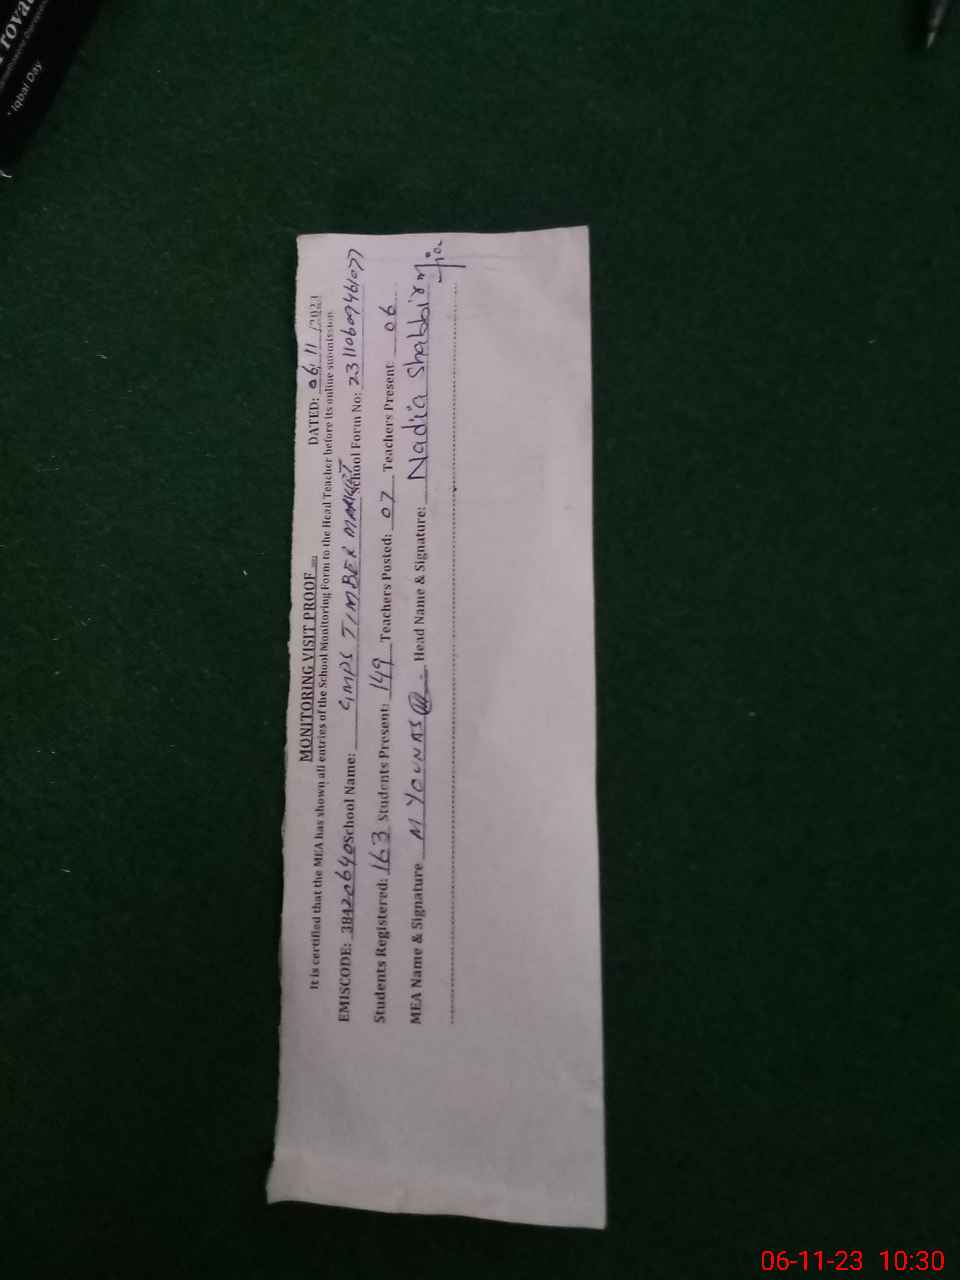 MONITORING VISIT PROOF
DATED: 06/11/2023
It is certified that the MEA has shown all entries of the School Monitoring Form to the Head Teacher before its online submission.
EMISCODE: 38420640 School Name: GMPS TIMBER MARKET School Form No: 23110609461077
Students Registered: 163 Students Present: 149 Teachers Posted: 07 Teachers Present: 06
MEA Name & Signature M YOUNAS Head Name & Signature: Nadia Shabbir
Iqbal Day
06-11-23 10:30